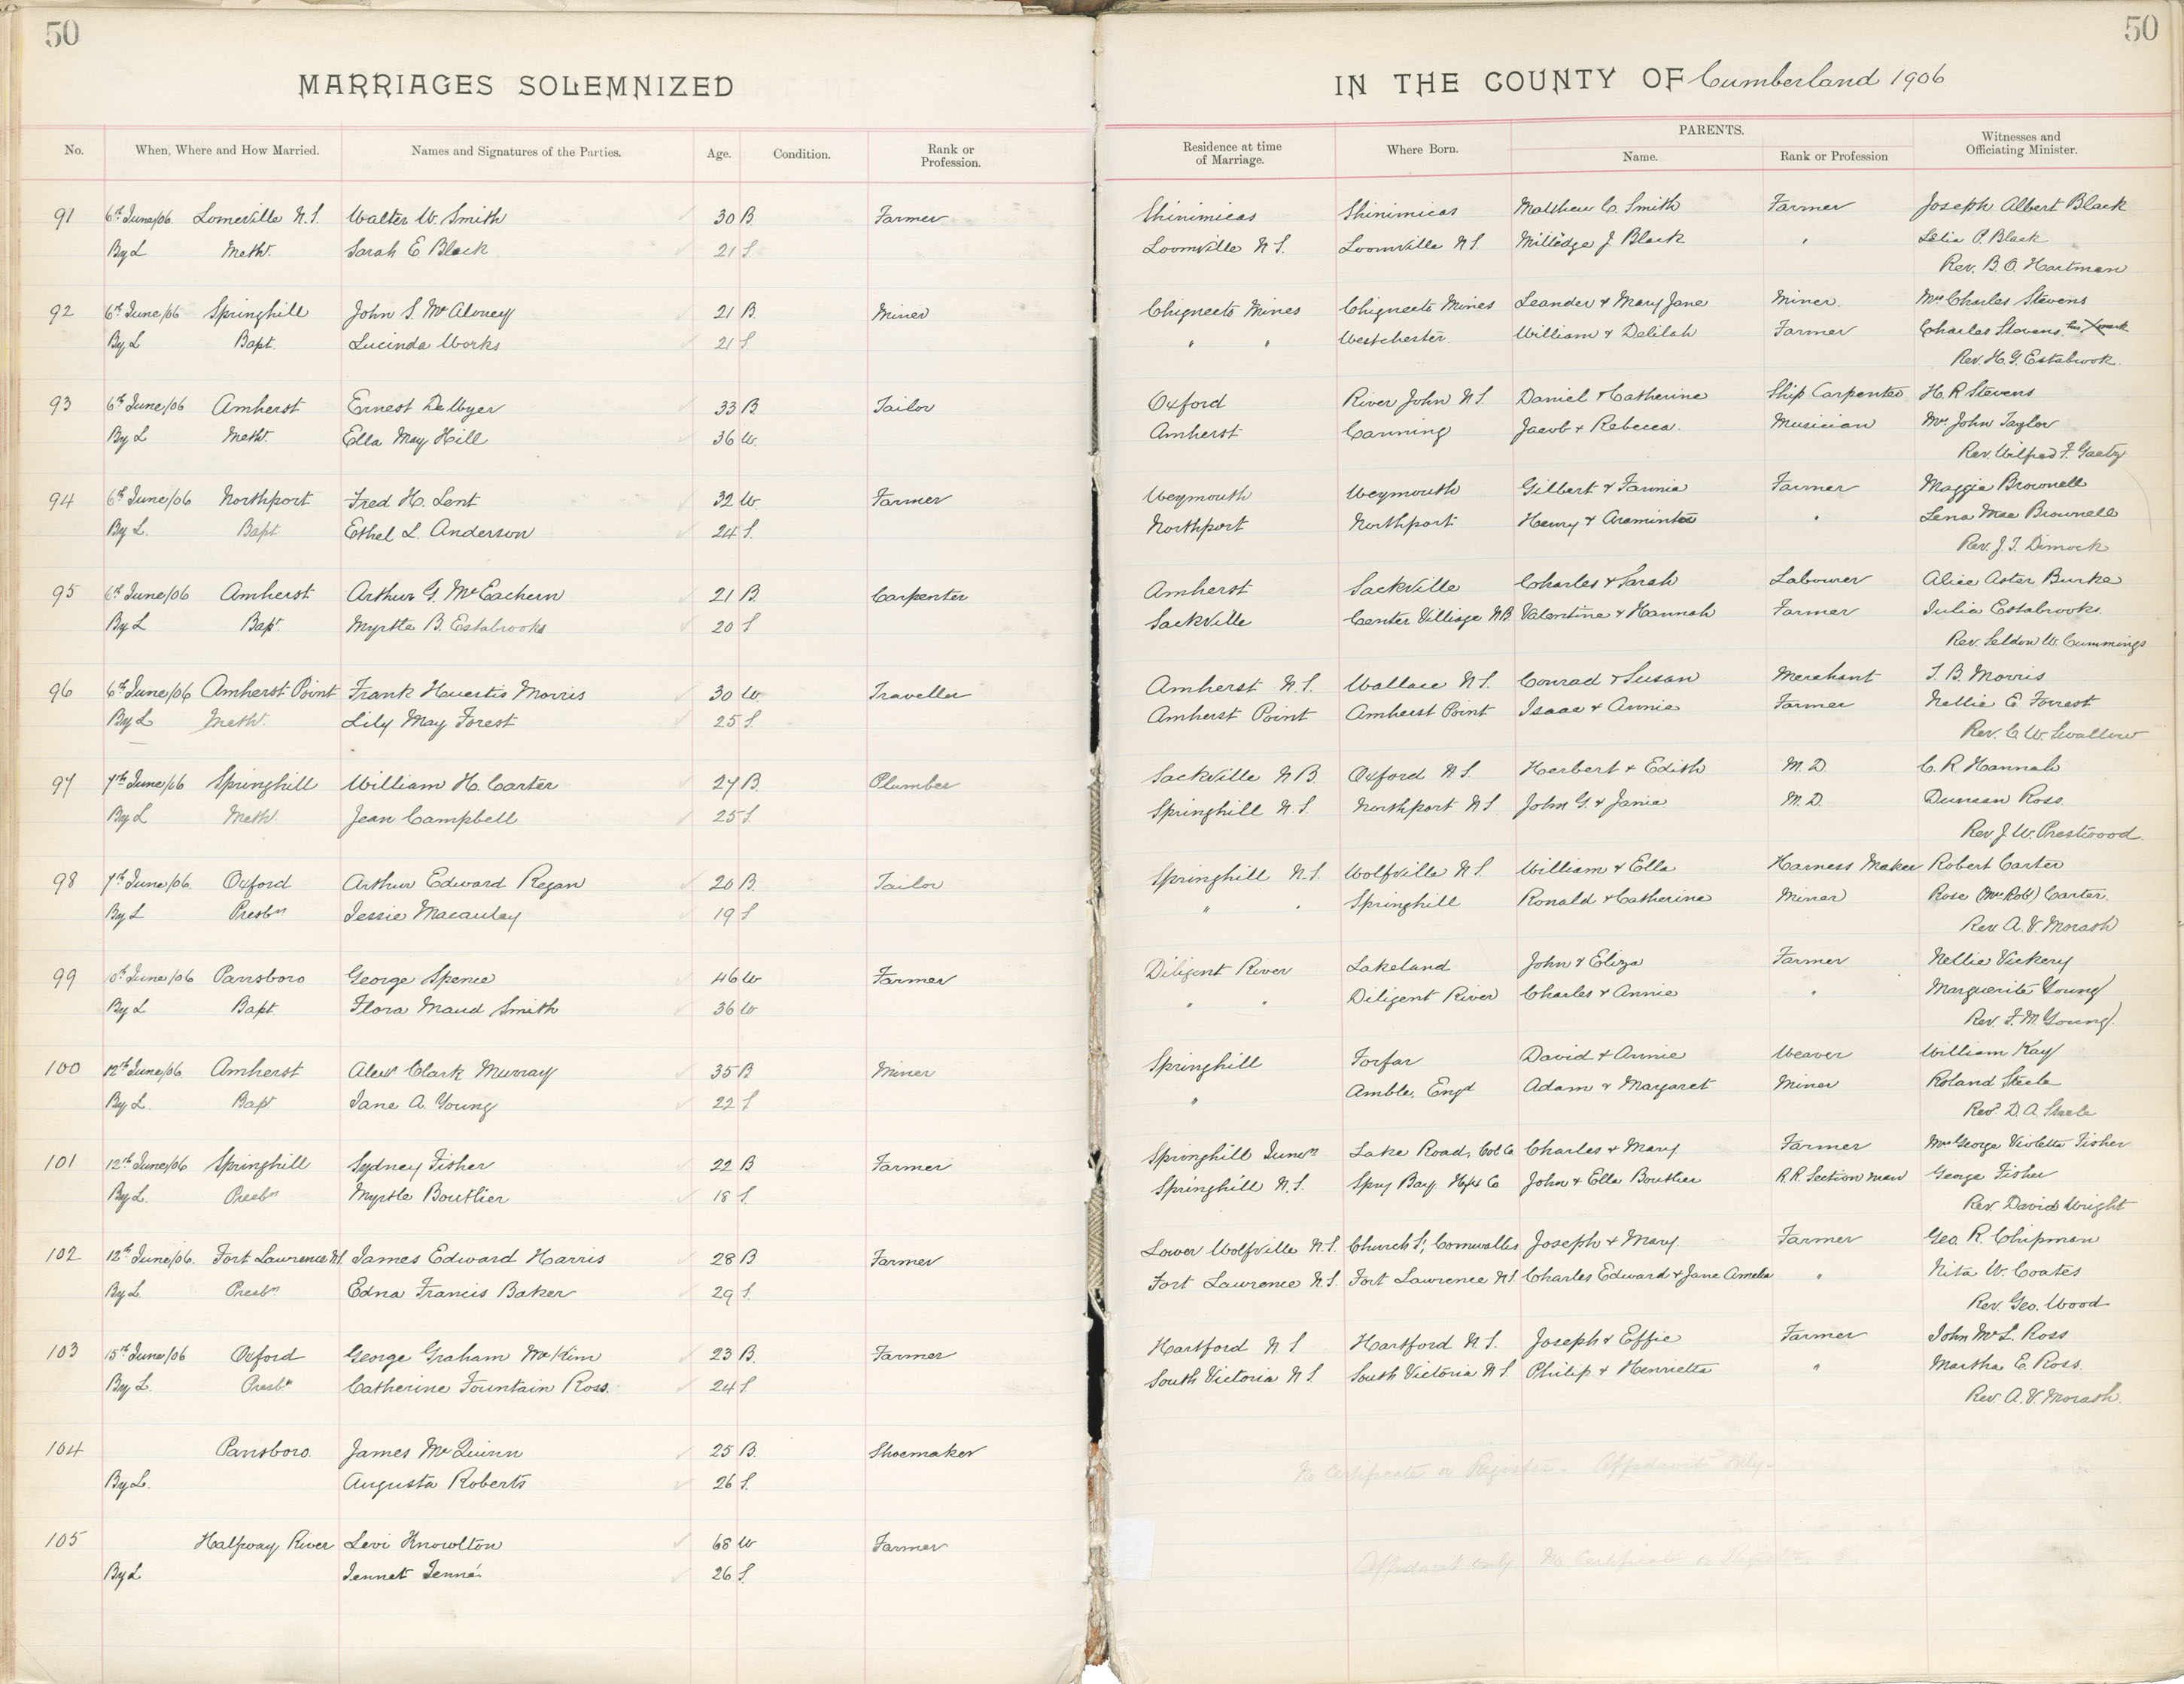 50
50
MARRIAGES SOLEMNIZED
IN THE COUNTY OF Cumberland 1906
No. When, Where and How Married. Names and Signatures of the Parties. Age. Condition. Rank or Profession. Residence at time of Marriage. Where Born. PARENTS. Name. Rank or Profession Witnesses and Officiating Minister.
91 6th June/06 Lomerville N.S. Walter W. Smith 30 B. Farmer Shinimicas Shinimicas Matthew C. Smith Farmer Joseph Albert Black
By L Meth. Sarah E Black 21 S. Loomville N S. Loomville N S. Milledge J Black " Lelia P. Black
Rev. B. O. Hartman
92 6th June/06 Springhill John S. McAloney 21 B. Miner Chignecto Mines Chignecto Mines Leander & Mary Jane Miner. Mrs Charles Stevens
By L Bapt. Lucinda Works 21 S. " " Westchester. William & Delilah Farmer Charles Stevens his X mark
Rev. H. G. Estabrook.
93 6th June/06 Amherst Ernest DeWyer 33 B Tailor Oxford River John N S. Daniel & Catherine Ship Carpenter H. R Stevens
By L Meth. Ella May Hill 36 W. Amherst Canning Jacob & Rebecca. Musician Mrs John Taylor
Rev. Wilfred F. Gaetz
94 6th June/06 Northport Fred H. Lent 32 W. Farmer Weymouth Weymouth Gilbert & Fannie Farmer Maggie Brownell
By L. Bapt. Ethel L. Anderson 24 S. Northport Northport Henry & Araminta " Lena Mae Brownell
Rev. J. T. Dimock
95 6th June/06 Amherst Arthur G. McEachern 21 B. Carpenter Amherst Sackville Charles & Sarah Labourer Alice Aster Burke
By L Bapt. Myrtle B. Estabrooks 20 S Sackville Center Village N.B. Valentine & Hannah Farmer Julia Estabrooks
Rev. Seldon W. Cummings
96 6th June/06 Amherst Point Frank Huestis Morris 30 W. Traveller Amherst N.S. Wallace N S. Conrad & Susan Merchant S. B. Morris
By L Meth. Lily May Forest 25 S. Amherst Point Amherst Point Isaac & Annie Farmer Nellie E Forrest
Rev. C. W. Swallow
97 7th June/06 Springhill William H. Carter 27 B. Plumber Sackville N B. Oxford N S. Herbert & Edith M. D. C. R Hannah
By L Meth. Jean Campbell 25 S. Springhill N. S. Northport N S John G. & Janie M. D. Duncan Ross.
Rev J. W. Prestwood.
98 7th June/06. Oxford Arthur Edward Regan 20 B. Tailor Springhill N.S. Wolfville N S. William & Ella Harness Maker Robert Carter
By L Presbn Jessie Macaulay 19 S " " Springhill Ronald & Catherine Miner Rose (Mrs Robt) Carter.
Rev A. V. Morash
99 10th June/06 Parrsboro George Spence 46 W Farmer Diligent River Lakeland John & Eliza Farmer Nellie Vickery
By L Bapt. Flora Maud Smith 36 W " " Diligent River Charles & Annie " Marguerite Young
Rev. F. M. Young.
100 12th June/06 Amherst Alex Clark Murray 35 B Miner Springhill Forfar David & Annie Weaver William Kay
By L. Bapt Jane A. Young 22 S " Amble, Engd Adam & Margaret Miner Roland Steele
Rev. D. A. Steele
101 12th June/06 Springhill Sydney Fisher 22 B Farmer Springhill Juncn Lake Road, Col Co Charles & Mary Farmer Mrs George Violetta Fisher
By L. Presbn Myrtle Boutlier 18 S. Springhill N.S. Spry Bay Hfx Co John & Ella Boutlier R.R. Section man George Fisher
Rev. David Wright
102 12th June/06. Fort Lawrence N.S. James Edward Harris 28 B Farmer Lower Wolfville N.S. Church St, Cornwallis Joseph & Mary. Farmer Geo. R. Chipman
By L. Presbn Edna Francis Baker 29 S. Fort Lawrence N.S. Fort Lawrence N S. Charles Edward & Jane Amelia " Nita W. Coates
Rev. Geo. Wood
103 15th June/06 Oxford George Graham McKim 23 B. Farmer Hartford N S. Hartford N. S. Joseph & Effie Farmer John McL. Ross
By L. Presbn Catherine Fountain Ross. 24 S South Victoria N S. South Victoria N S Philip & Henrietta " Martha E. Ross.
Rev. A. V. Morash.
104 Parrsboro. James McQuinn 25 B. Shoemaker
By L. Augusta Roberts 26 S. No Certificate or Register - Affidavit Only-
105 Halfway River Levi Knowlton 68 W Farmer
By L Jennet Jenné 26 S. Affidavit only. No Certificate or Register